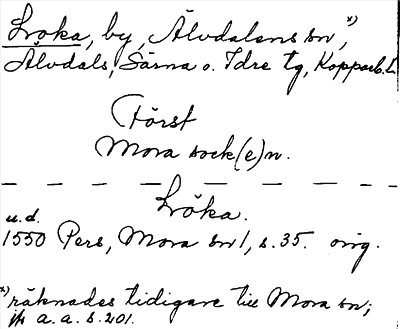 Lroka, by, Älvdalens sn *),
Älvdals, Särna o. Idre tg, Kopparb. L.
Först
Mora sock(e)n.
Lröka.
u.d.
1550 Pers, Mora sn 1, s. 35. orig.
*) räknades tidigare till Mora sn;
jfr a. a. s. 201.